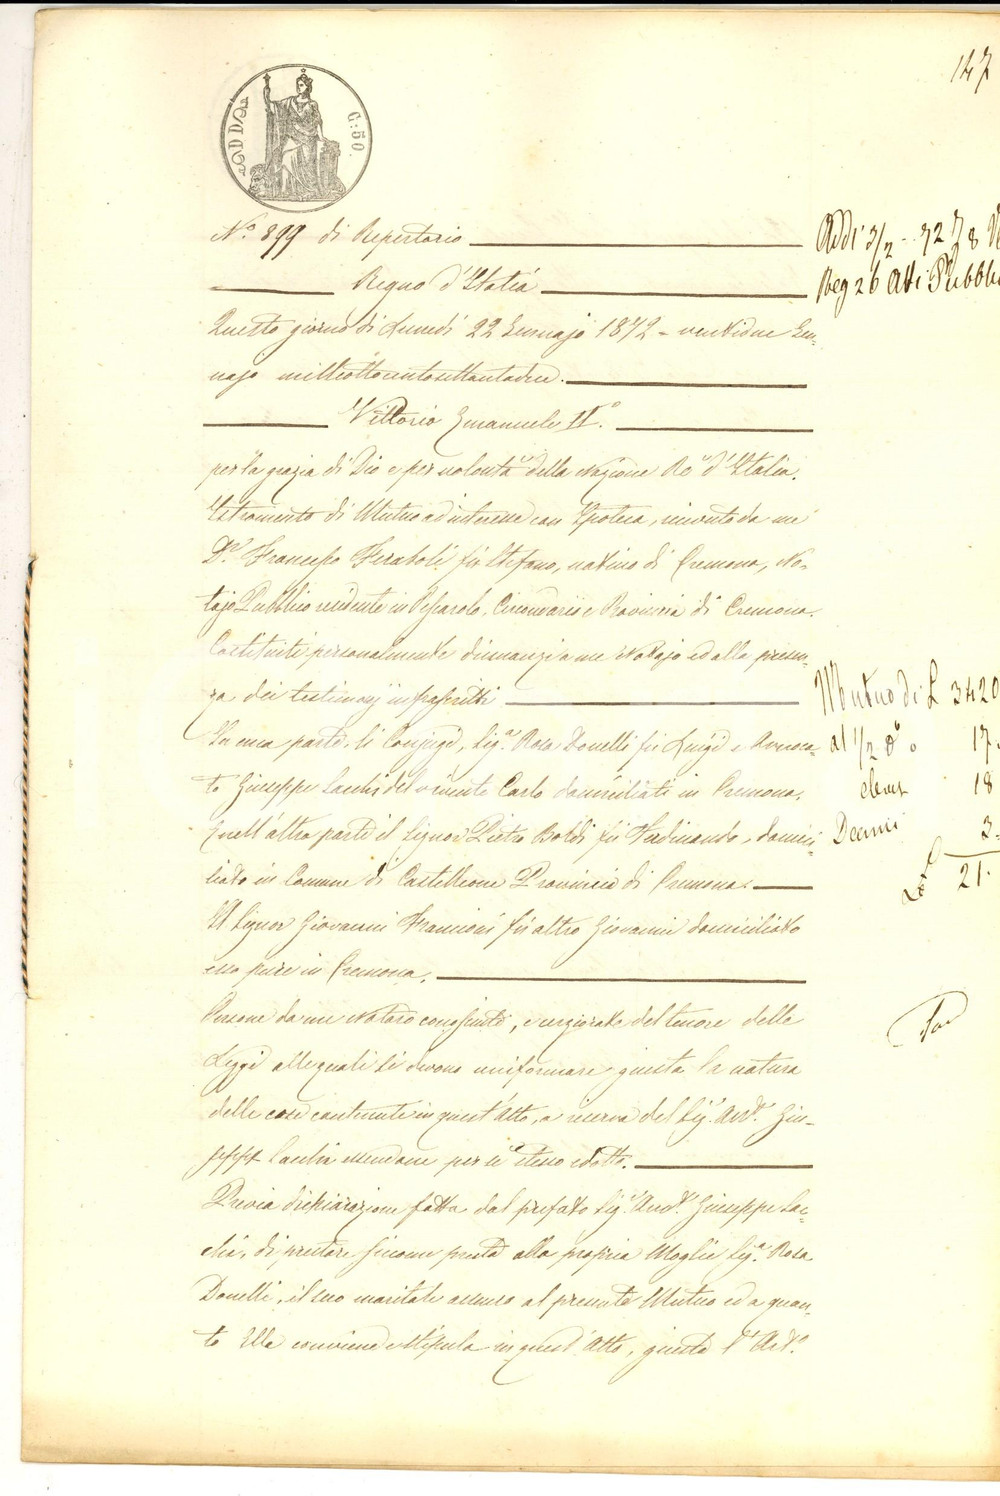 147
C: 50.
N.° 899 di Repertorio
Regno d'Italia
Questo giorno di Lunedì 22 Gennajo 1872 - ventidue Gen-
najo milleottocentosettantadue.
Vittorio Emanuele II.°
per la grazia di Dio e per volontà della Nazione Re d'Italia.
Istromento di Mutuo ad interesse con Ipoteca, ricevuto da me
D.r Francesco Feraboli fu Stefano, nativo di Cremona, No-
tajo Pubblico residente in Pescarolo, Circondario e Provincia di Cremona.
Costituiti personalmente dinnanzi a me Notajo ed alla presen-
za dei testimonj infrascritti
In una parte, li Conjugi, Sig.a Rosa Donelli fu Luigi e Avvoca-
to Giuseppe Sacchi del vivente Carlo domiciliati in Cremona.
Nell'altra parte il Signor Pietro Boldi fu Ferdinando, domici-
liato in Comune di Castelleone Provincia di Cremona.
Il Signor Giovanni Francioni fu altro Giovanni domiciliato
esso pure in Cremona.
Persone da me Notaro conosciute, e cerziorate del tenore delle
Leggi alle quali si devono uniformare giusta la natura
delle cose contenute in quest'Atto, a riserva del Sig. Avv.to Giu-
seppe Sacchi essendone per sè stesso edotto.
Previa dichiarazione fatta dal prefato Sig. Avv.to Giuseppe Sac-
chi, di prestare siccome presta alla propria Moglie Sig.a Rosa
Donelli, il suo maritale assenso al presente Mutuo ed a quan-
to Ella conviene e stipula in quest'Atto, giusta l'Art.°
Addì 3/2 - 72
Reg 26 Atti Pubbli
Mutuo di L 3420
al 1/2 % 17.
18
Decimi 3.
L 21.